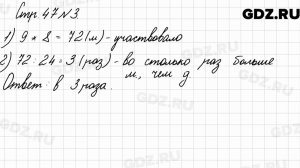 GDZ.RU
Стр. 47 №3
1) 9 * 8 = 72 (м) - участвовало
2) 72 : 24 = 3 (раз) - во столько раз больше
м, чем д
Ответ: в 3 раза.
GDZ.RU